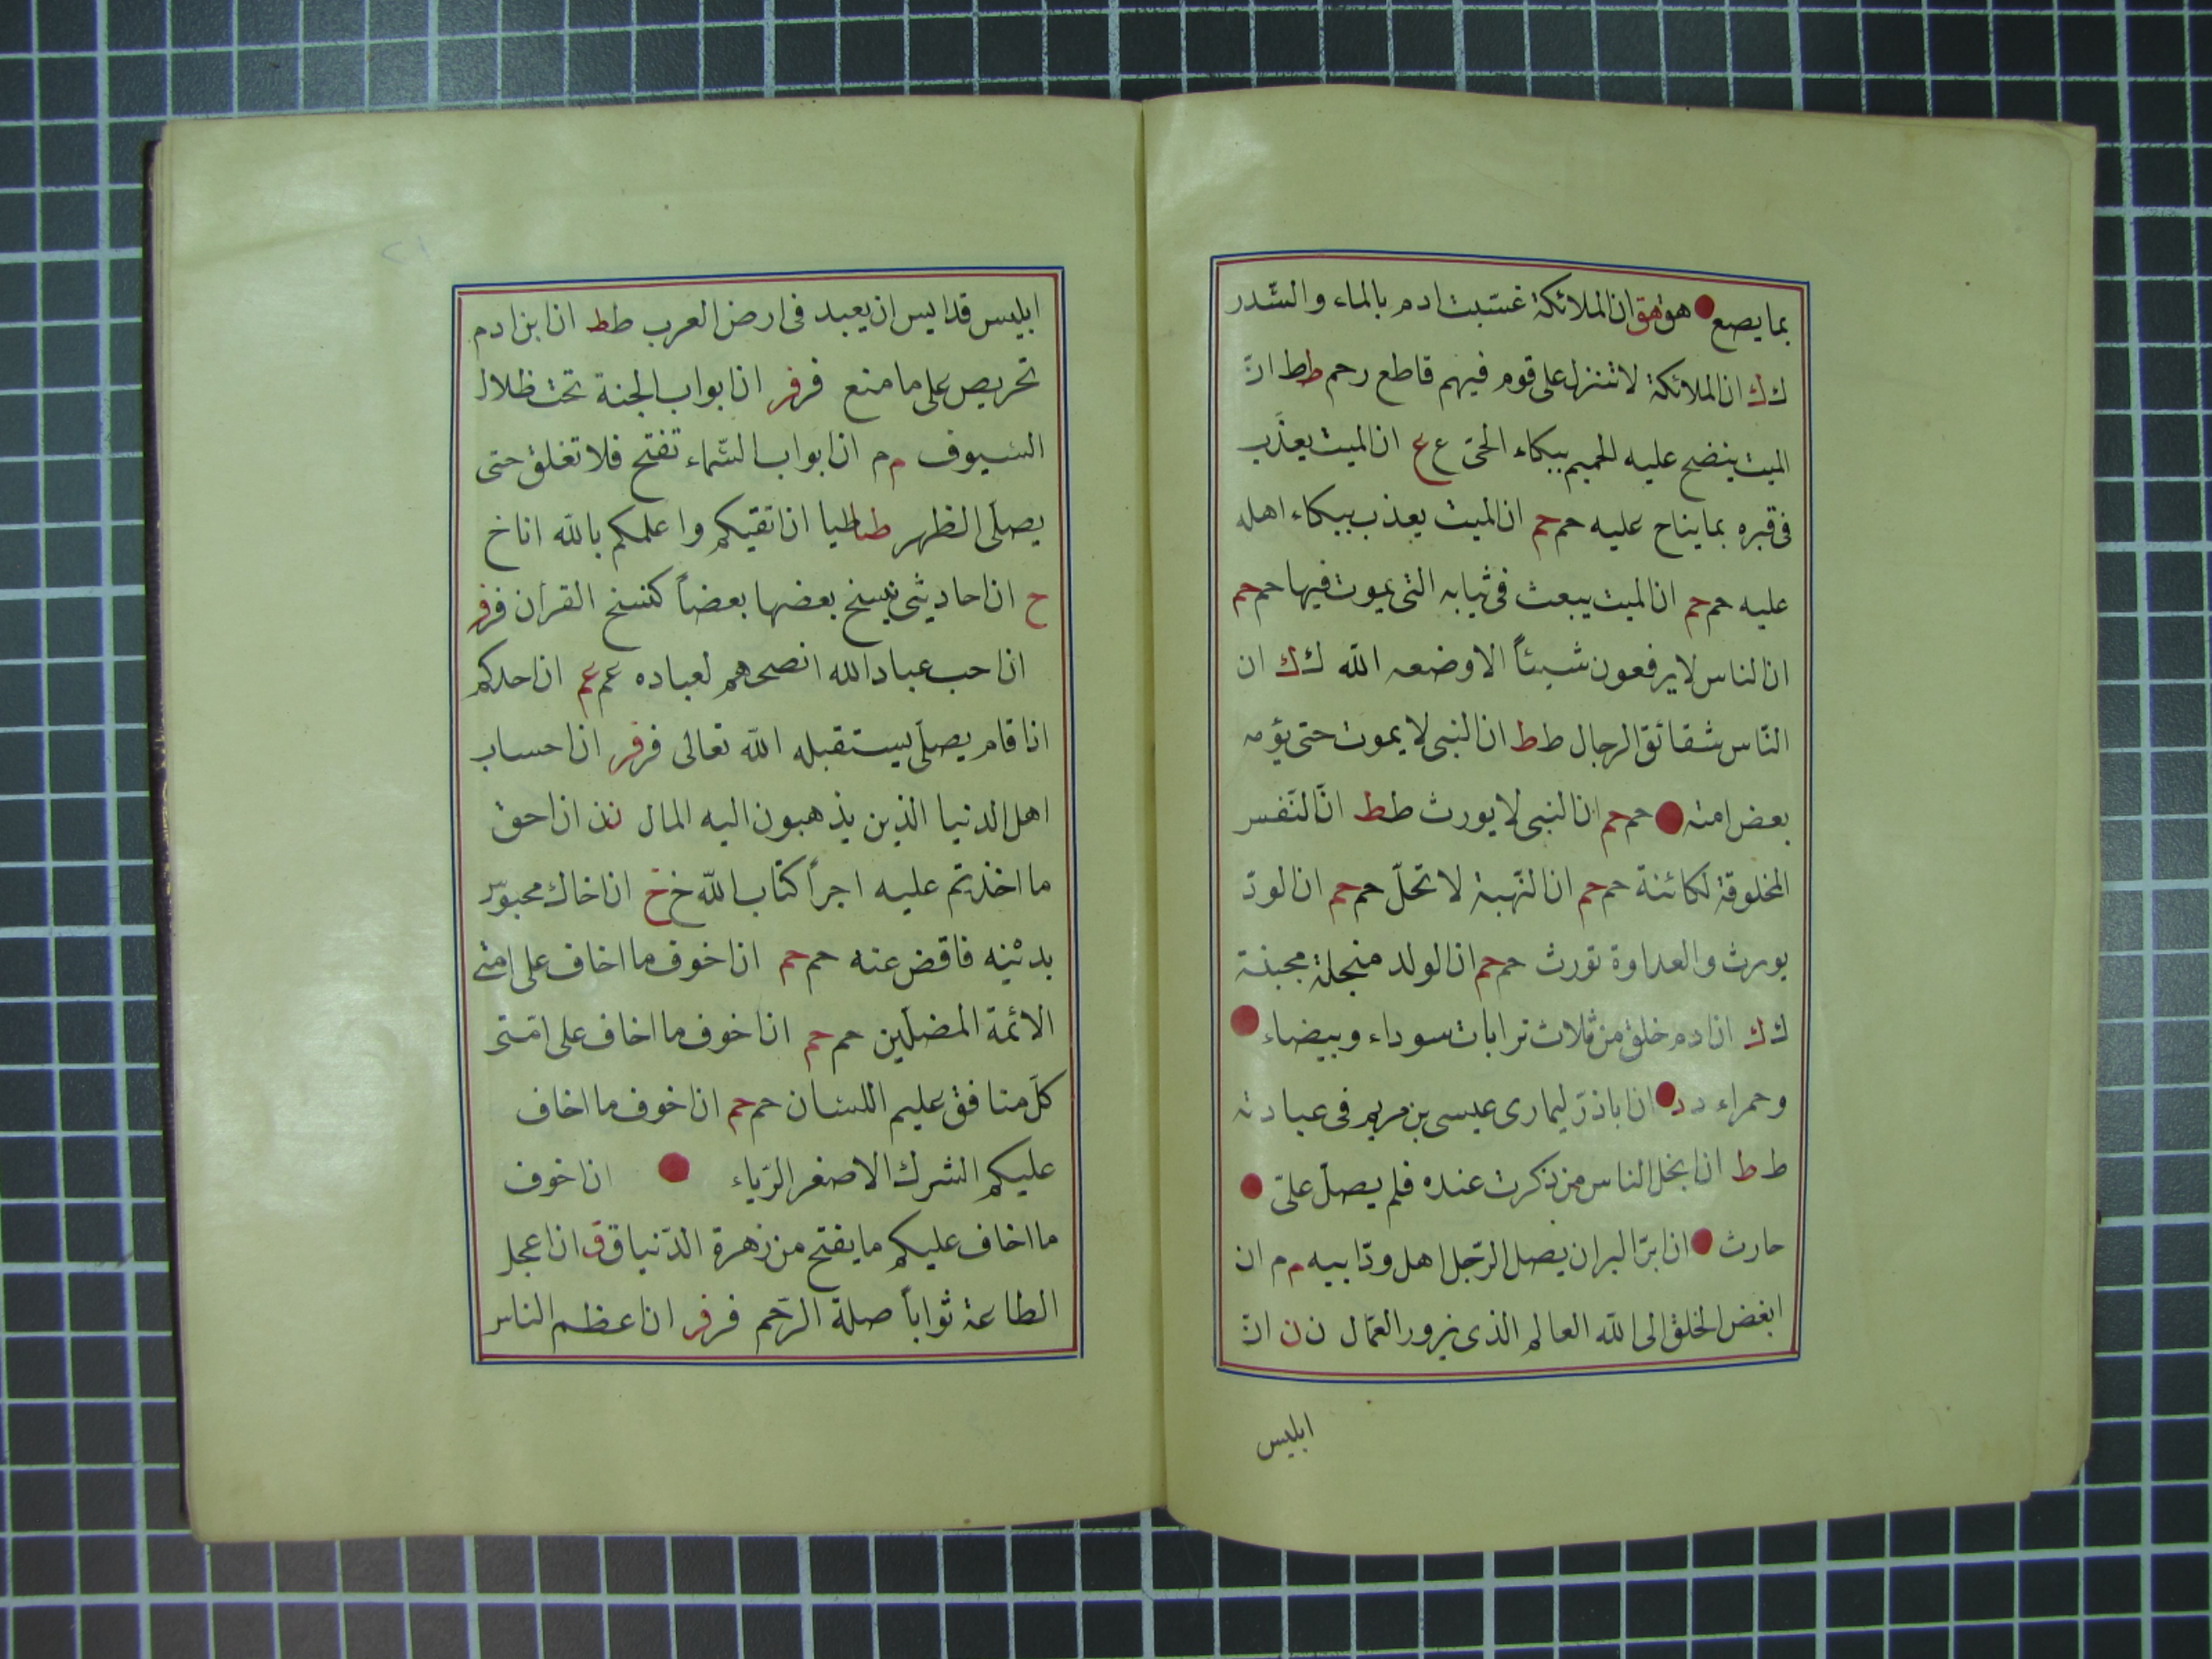 بما يصع هق هق ان الملائكة غسّبت ادم بالماء والسّدر
ك ك ان الملائكة لا تنزل على قوم فيهم قاطع رحم ط ط انّ
الميت ينضح عليه الحميم ببكاء الحيّ ع ع ان الميت يعذّب
فى قبره بما يناح عليه حم حم ان الميت يعذب ببكاء اهله
عليه حم حم ان الميت يبعث فى ثيابه التى يموت فيها حم حم
ان الناس لا يرفعون شيئاً الا وضعه الله ك ك ان
النّاس شقائق الرجال ط ط ان النبى لا يموت حتى يؤمه
بعض امته حم حم ان النبى لا يورث ط ط انّ النّفس
المخلوقة لكائنة حم حم ان النّهبة لا تحلّ حم حم ان الودّ
يورث والعداوة تورث حم حم ان الولد منجلة مجبنة
ك ك ان ادم خلق من ثلاث ترابات سوداء وبيضاء
وحمراء د د ان اباذرّ ليمارى عيسى بن مريم فى عبادته
ط ط ان ابخل الناس من ذكرت عنده فلم يصلّ علىّ
حارث ان ابرّ البر ان يصل الرّجل اهل ودّ ابيه م م ان
ابغض الخلق الى الله العالم الذى يزور العمّال ن ن انّ
ابليس
ابليس قد ايس ان يعبد فى ارض العرب ط ط ان ابن ادم
تحريص على ما منع فر فر ان ابواب الجنة تحت ظلال
السيوف م م ان ابواب السّماء تفتح فلا تغلق حتى
يصلّى الظهر طيا طيا ان اتقيكم واعلمكم بالله انا خ
ح ان احاديثى ينسخ بعضها بعضاً كنسخ القران فر فر
ان احب عباد الله انصحهم لعباده عم عم ان احدكم
اذا قام يصلّى يستقبله الله تعالى فر فر ان احساب
اهل الدنيا الذين يذهبون اليه المال ن ن ان احق
ما اخذتم عليه اجراً كتاب الله خ خ ان اخاك محبوس
بدينه فاقض عنه حم حم ان اخوف ما اخاف على امتى
الائمة المضلّين حم حم ان اخوف ما اخاف على امّتى
كلّ منافق عليم اللسان حم حم ان اخوف ما اخاف
عليكم الشرك الاصغر الرّياء ان اخوف
ما اخاف عليكم ما يفتح من زهرة الدّنيا ق ق ان اعجل
الطاعة ثواباً صلة الرّحم فر فر ان اعظم الناس